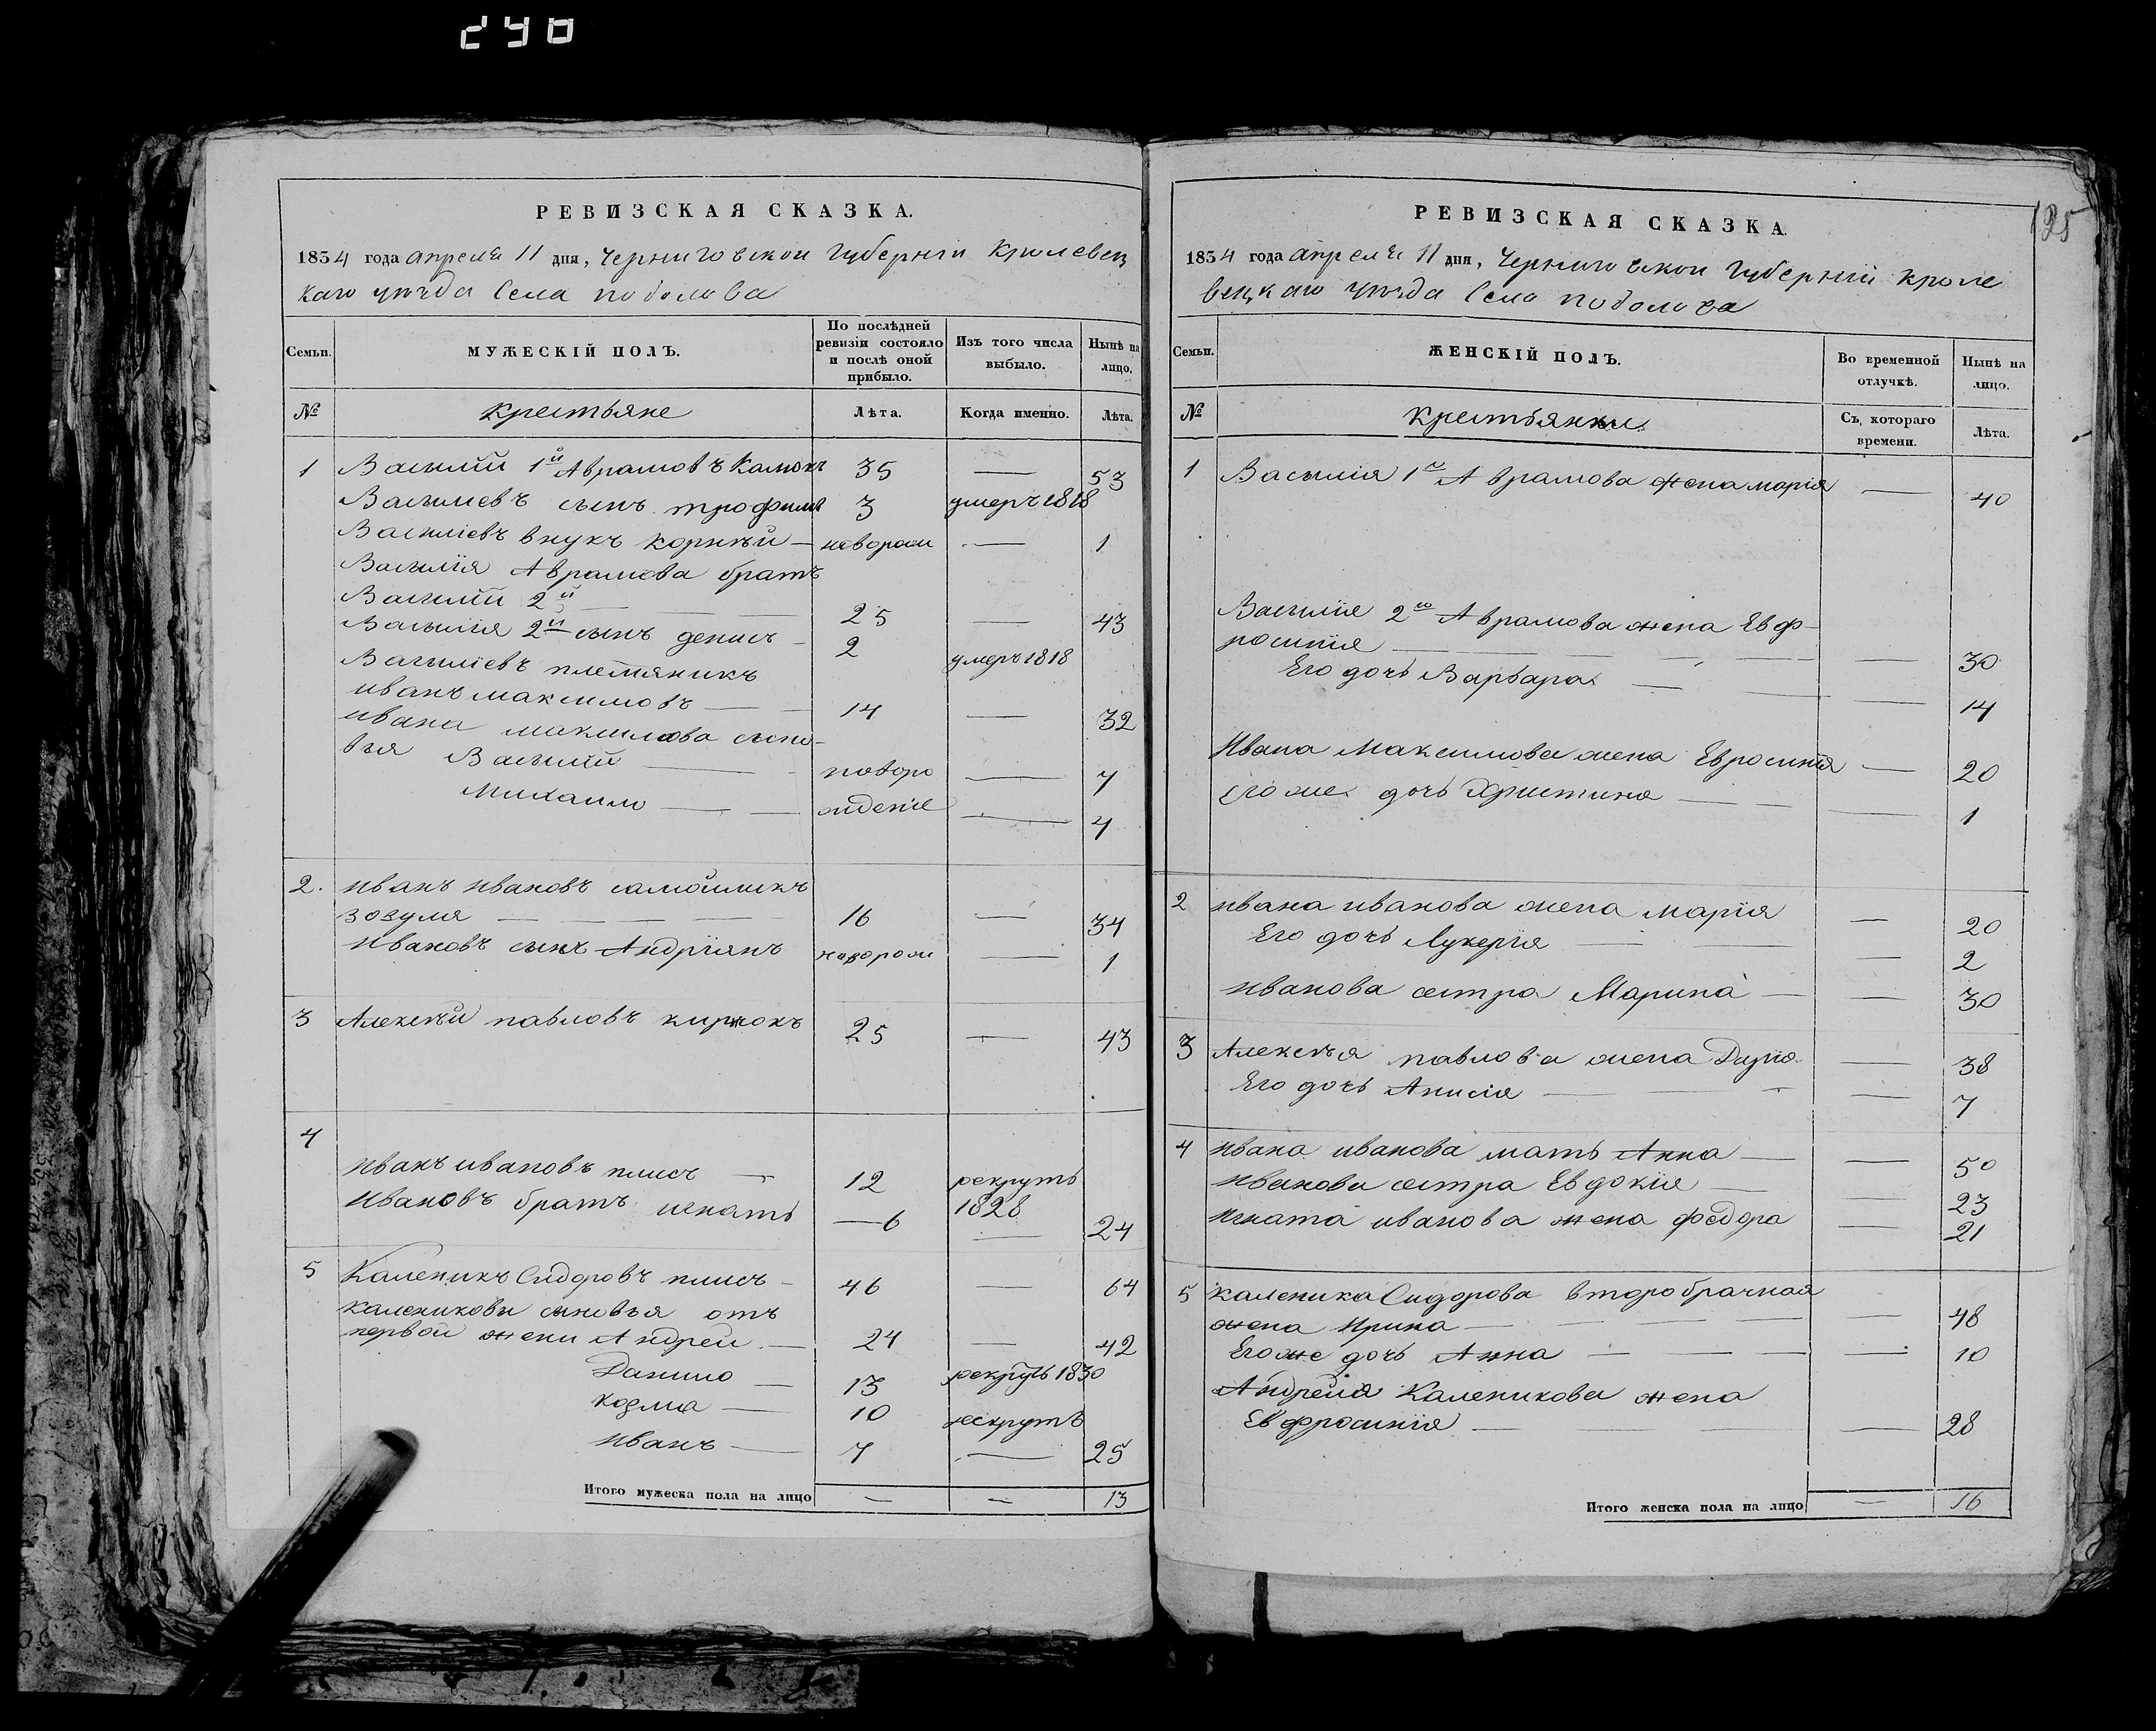 298
РЕВИЗСКАЯ СКАЗКА.
1834 года апреля 11 дня, Черниговской Губерніи Кролевец
каго уезда Села подолова
Семьи.
МУЖЕСКІЙ ПОЛЪ.
По послѣдней ревизіи состояло и послѣ оной прибыло.
Изъ того числа выбыло.
Нынѣ на лицо.
№
крестьяне
Лѣта.
Когда именно.
Лѣта.
1 Василій 1й Аврамовъ 35 — 53
Васильевъ сынъ трофимъ 3 умеръ 1818
Василіевъ внукъ корнѣй — новорож — 1
Василія Аврамова братъ
Василій 2й — 25 — 43
Василія 2й сынъ денисъ — 2 умеръ 1818
Василіевъ племяникъ
иванъ максимовъ — 14 — 32
ивана максимова сыно-
вья Василій — новоро — 7
Михаило — жденіе — 4
2. иванъ ивановъ самойликъ
зозуля — 16 — 34
ивановъ сынъ Андріянъ новорож — 1
3 Алексѣй павловъ 25 — 43
4
иванъ ивановъ плисъ — 12 рекрутъ
1828
ивановъ братъ игнатъ — 6 — 24
5 Каленикъ Сидоровъ плисъ — 46 — 64
калениковы сыновья отъ
первой жени Андрей — 24 — 42
Данило — 13 рекрутъ 1830
козма — 10 рекрутъ
иванъ — 7 — 25
Итого мужеска пола на лицо — — 13
125
РЕВИЗСКАЯ СКАЗКА.
1834 года апреля 11 дня, Черниговской Губерніи кроле
вецкаго уезда Села подолова
Семьи.
ЖЕНСКІЙ ПОЛЪ.
Во временной отлучкѣ.
Нынѣ на лицо.
№
крестьянки
Съ котораго времени.
Лѣта.
1 Василія 1го Аврамова жена марія — 40
Василія 2го Аврамова жена Евф-
росинія — 30
Его дочь Варвара — 14
Ивана Максимова жена Евросинія — 20
его же дочь Христина — 1
2 ивана иванова жена Марія — 20
Его дочь Лукерія — 2
иванова сестра Марина — 30
3 Алексѣя павлова жена — 38
Его дочь Анисія — 7
4 ивана иванова мать Анна — 50
иванова сестра Евдокія — 23
игната иванова жена федора — 21
5 каленика Сидорова второбрачная
жена Ирина — 48
Его же дочь Анна — 10
Андрея Каленикова жена
Евфросинія — 28
Итого женска пола на лицо — 16